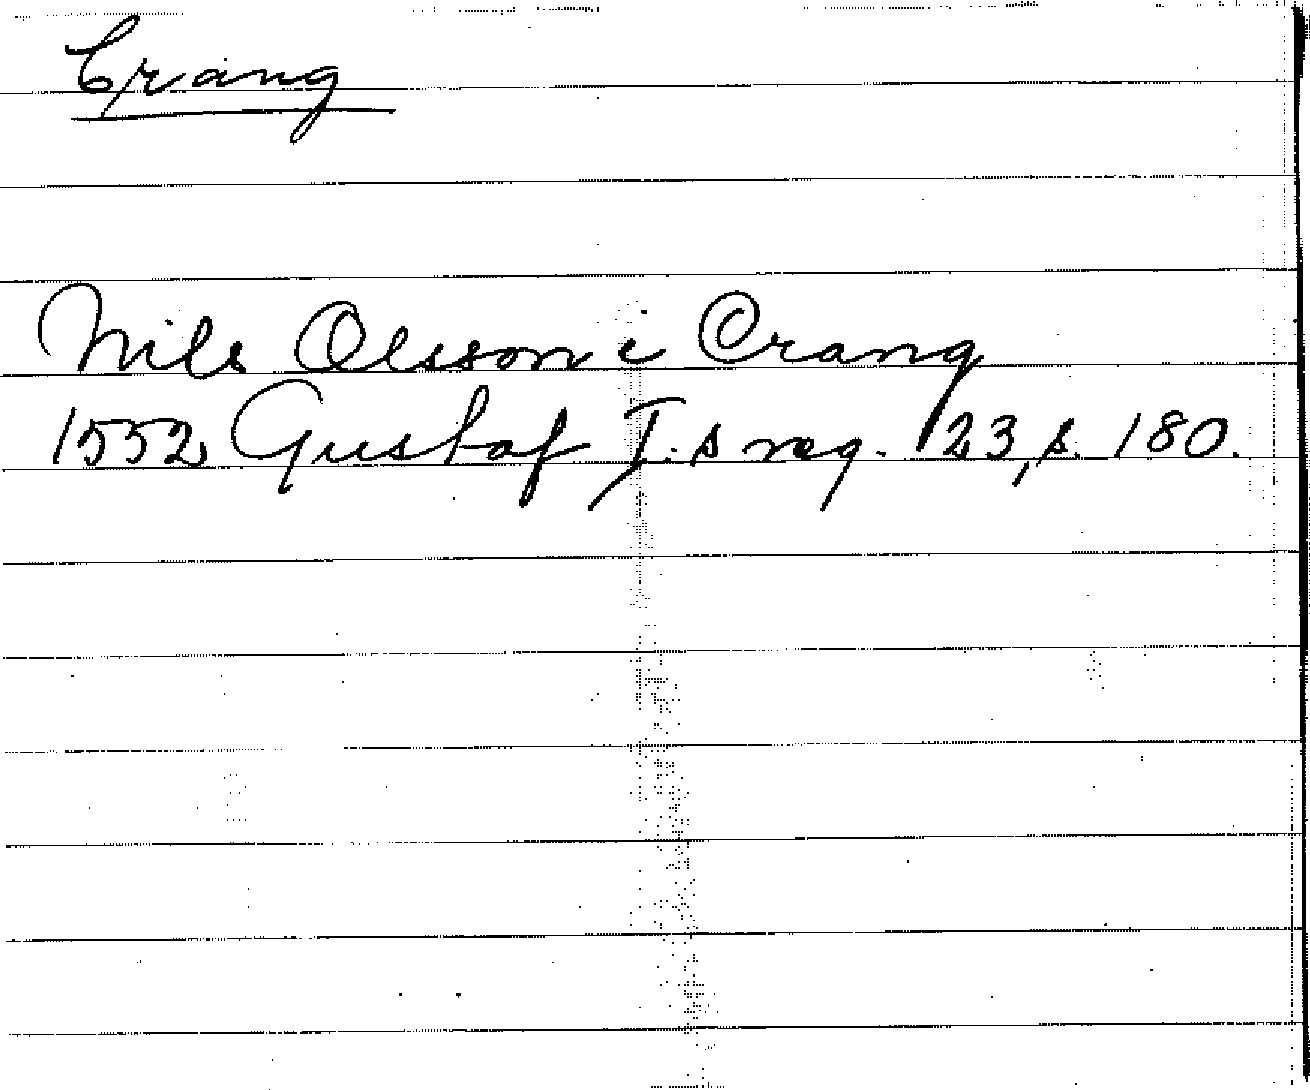 Crang
Nils Olsson i Crang
1552 Gustaf I.s reg. 23, s. 180.